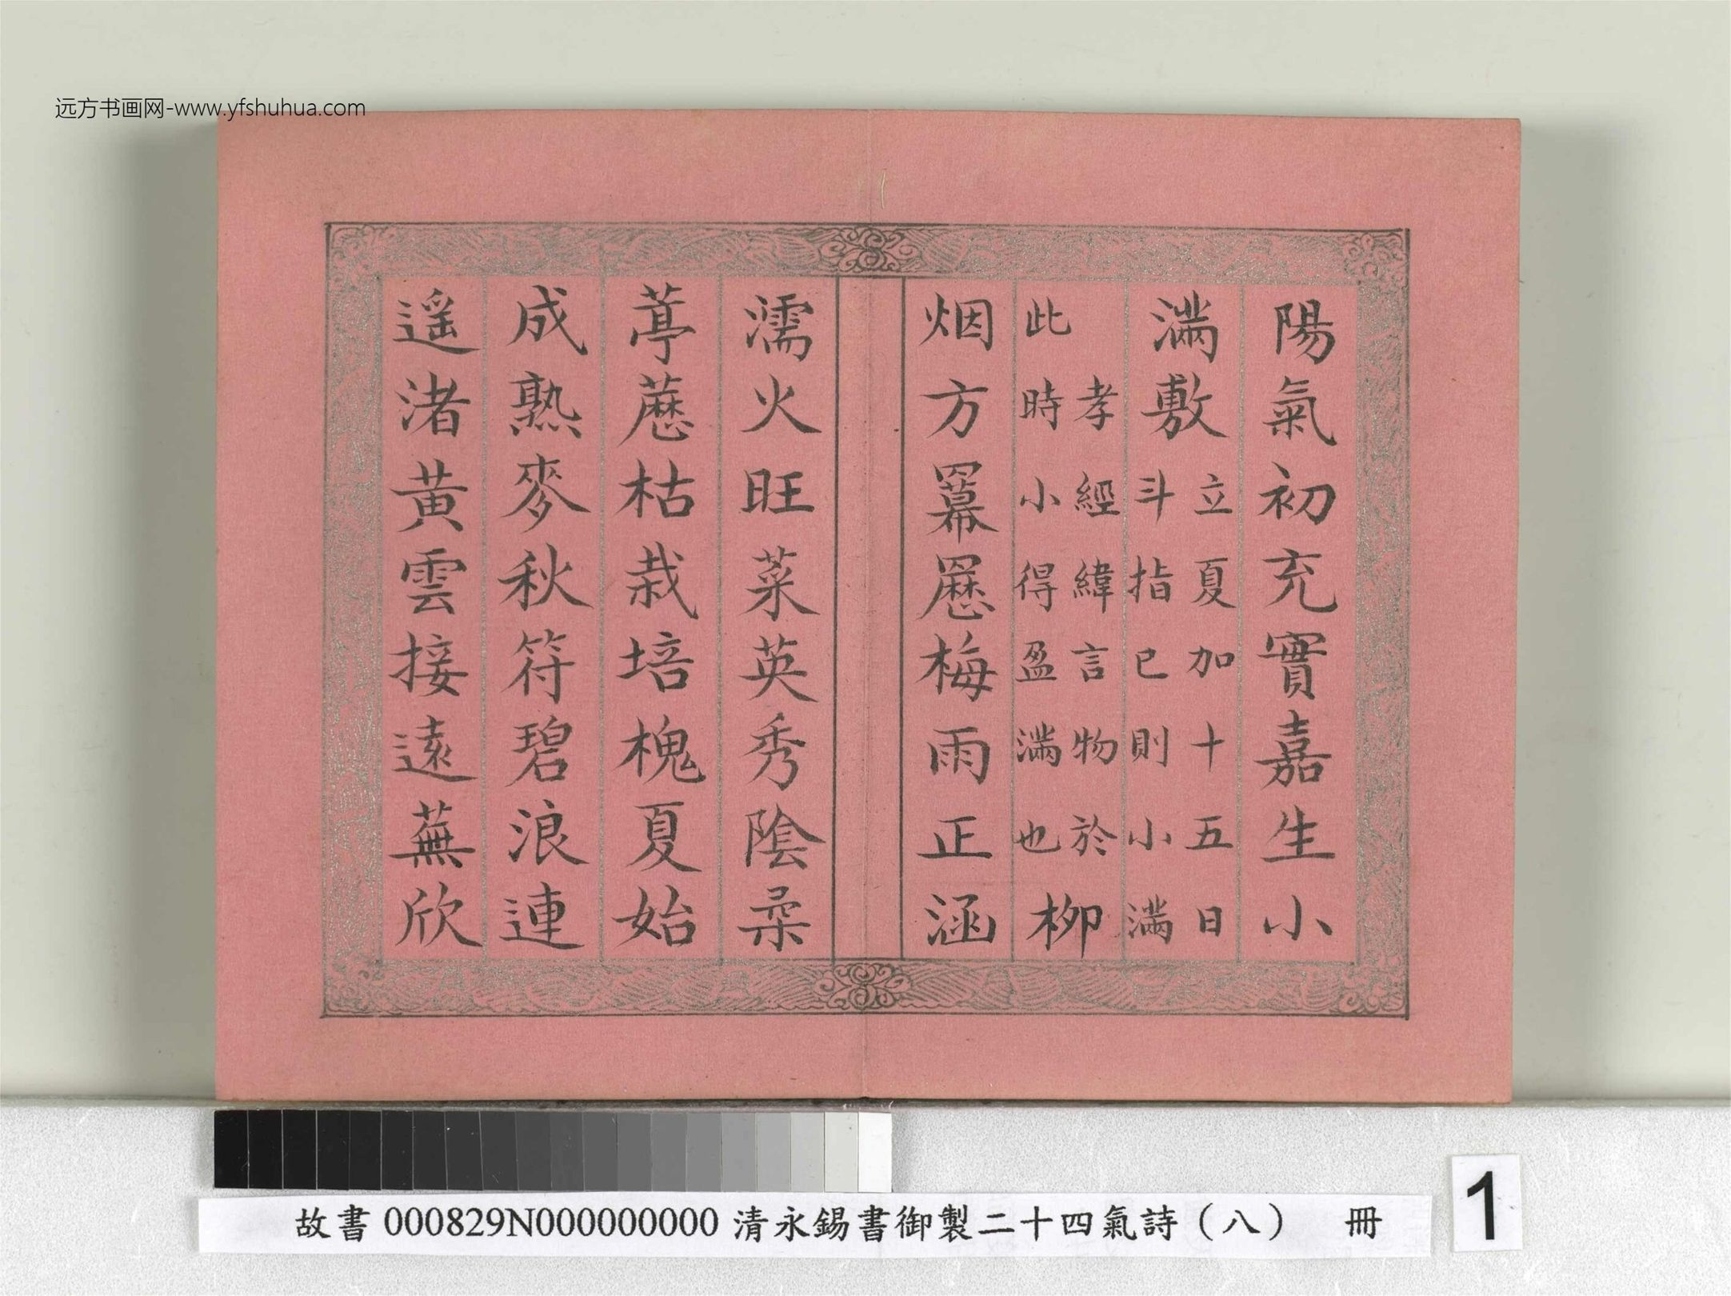 远方书画网-www.yfshuhua.com
陽氣初充實嘉生小
滿敷立夏加十五日斗指巳則小滿
此孝經緯言物於時小得盈滿也柳
烟方羃𮗚梅雨正涵
濡火旺菜英秀陰柔
葶藶枯栽培槐夏始
成熟麥秋符碧浪連
遥渚黃雲接遠蕪欣
故書000829N000000000清永錫書御製二十四氣詩（八） 冊
1